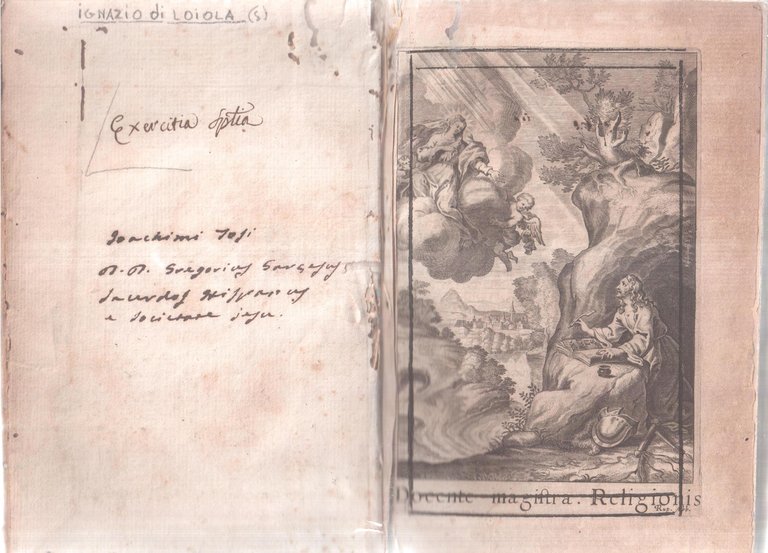 IGNAZIO di LOIOLA (S)
Exercitia Sptia
Joachimi Josi
R.R. Gregorius
Sacerdos Hispanus
e Societate Jesu.
Docente magiſtra. Religionis